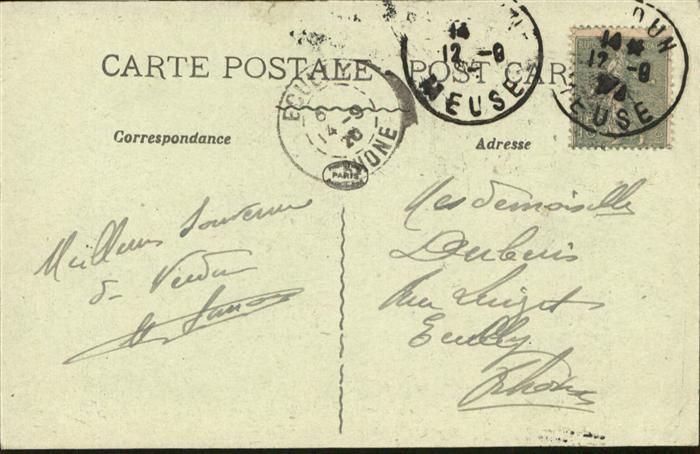 CARTE POSTALE
POST CAR
Correspondance
Adresse
14
12 -9
MEUSE
14 *
12 -9
MEUSE
ECU
6 -9
14
20
PARIS
Meilleurs Souvenirs
de Verdun
Mesdemoiselles
Rue
Ecully
Rhône